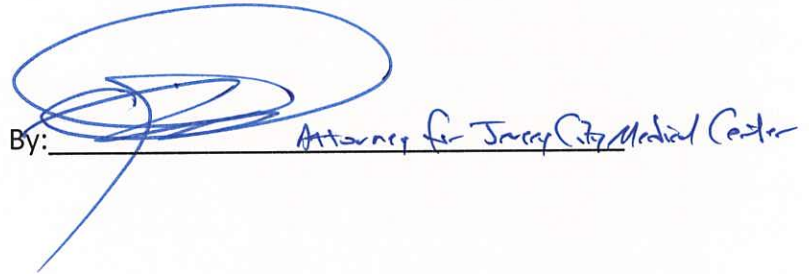 By: Attorney for Jersey City Medical Center